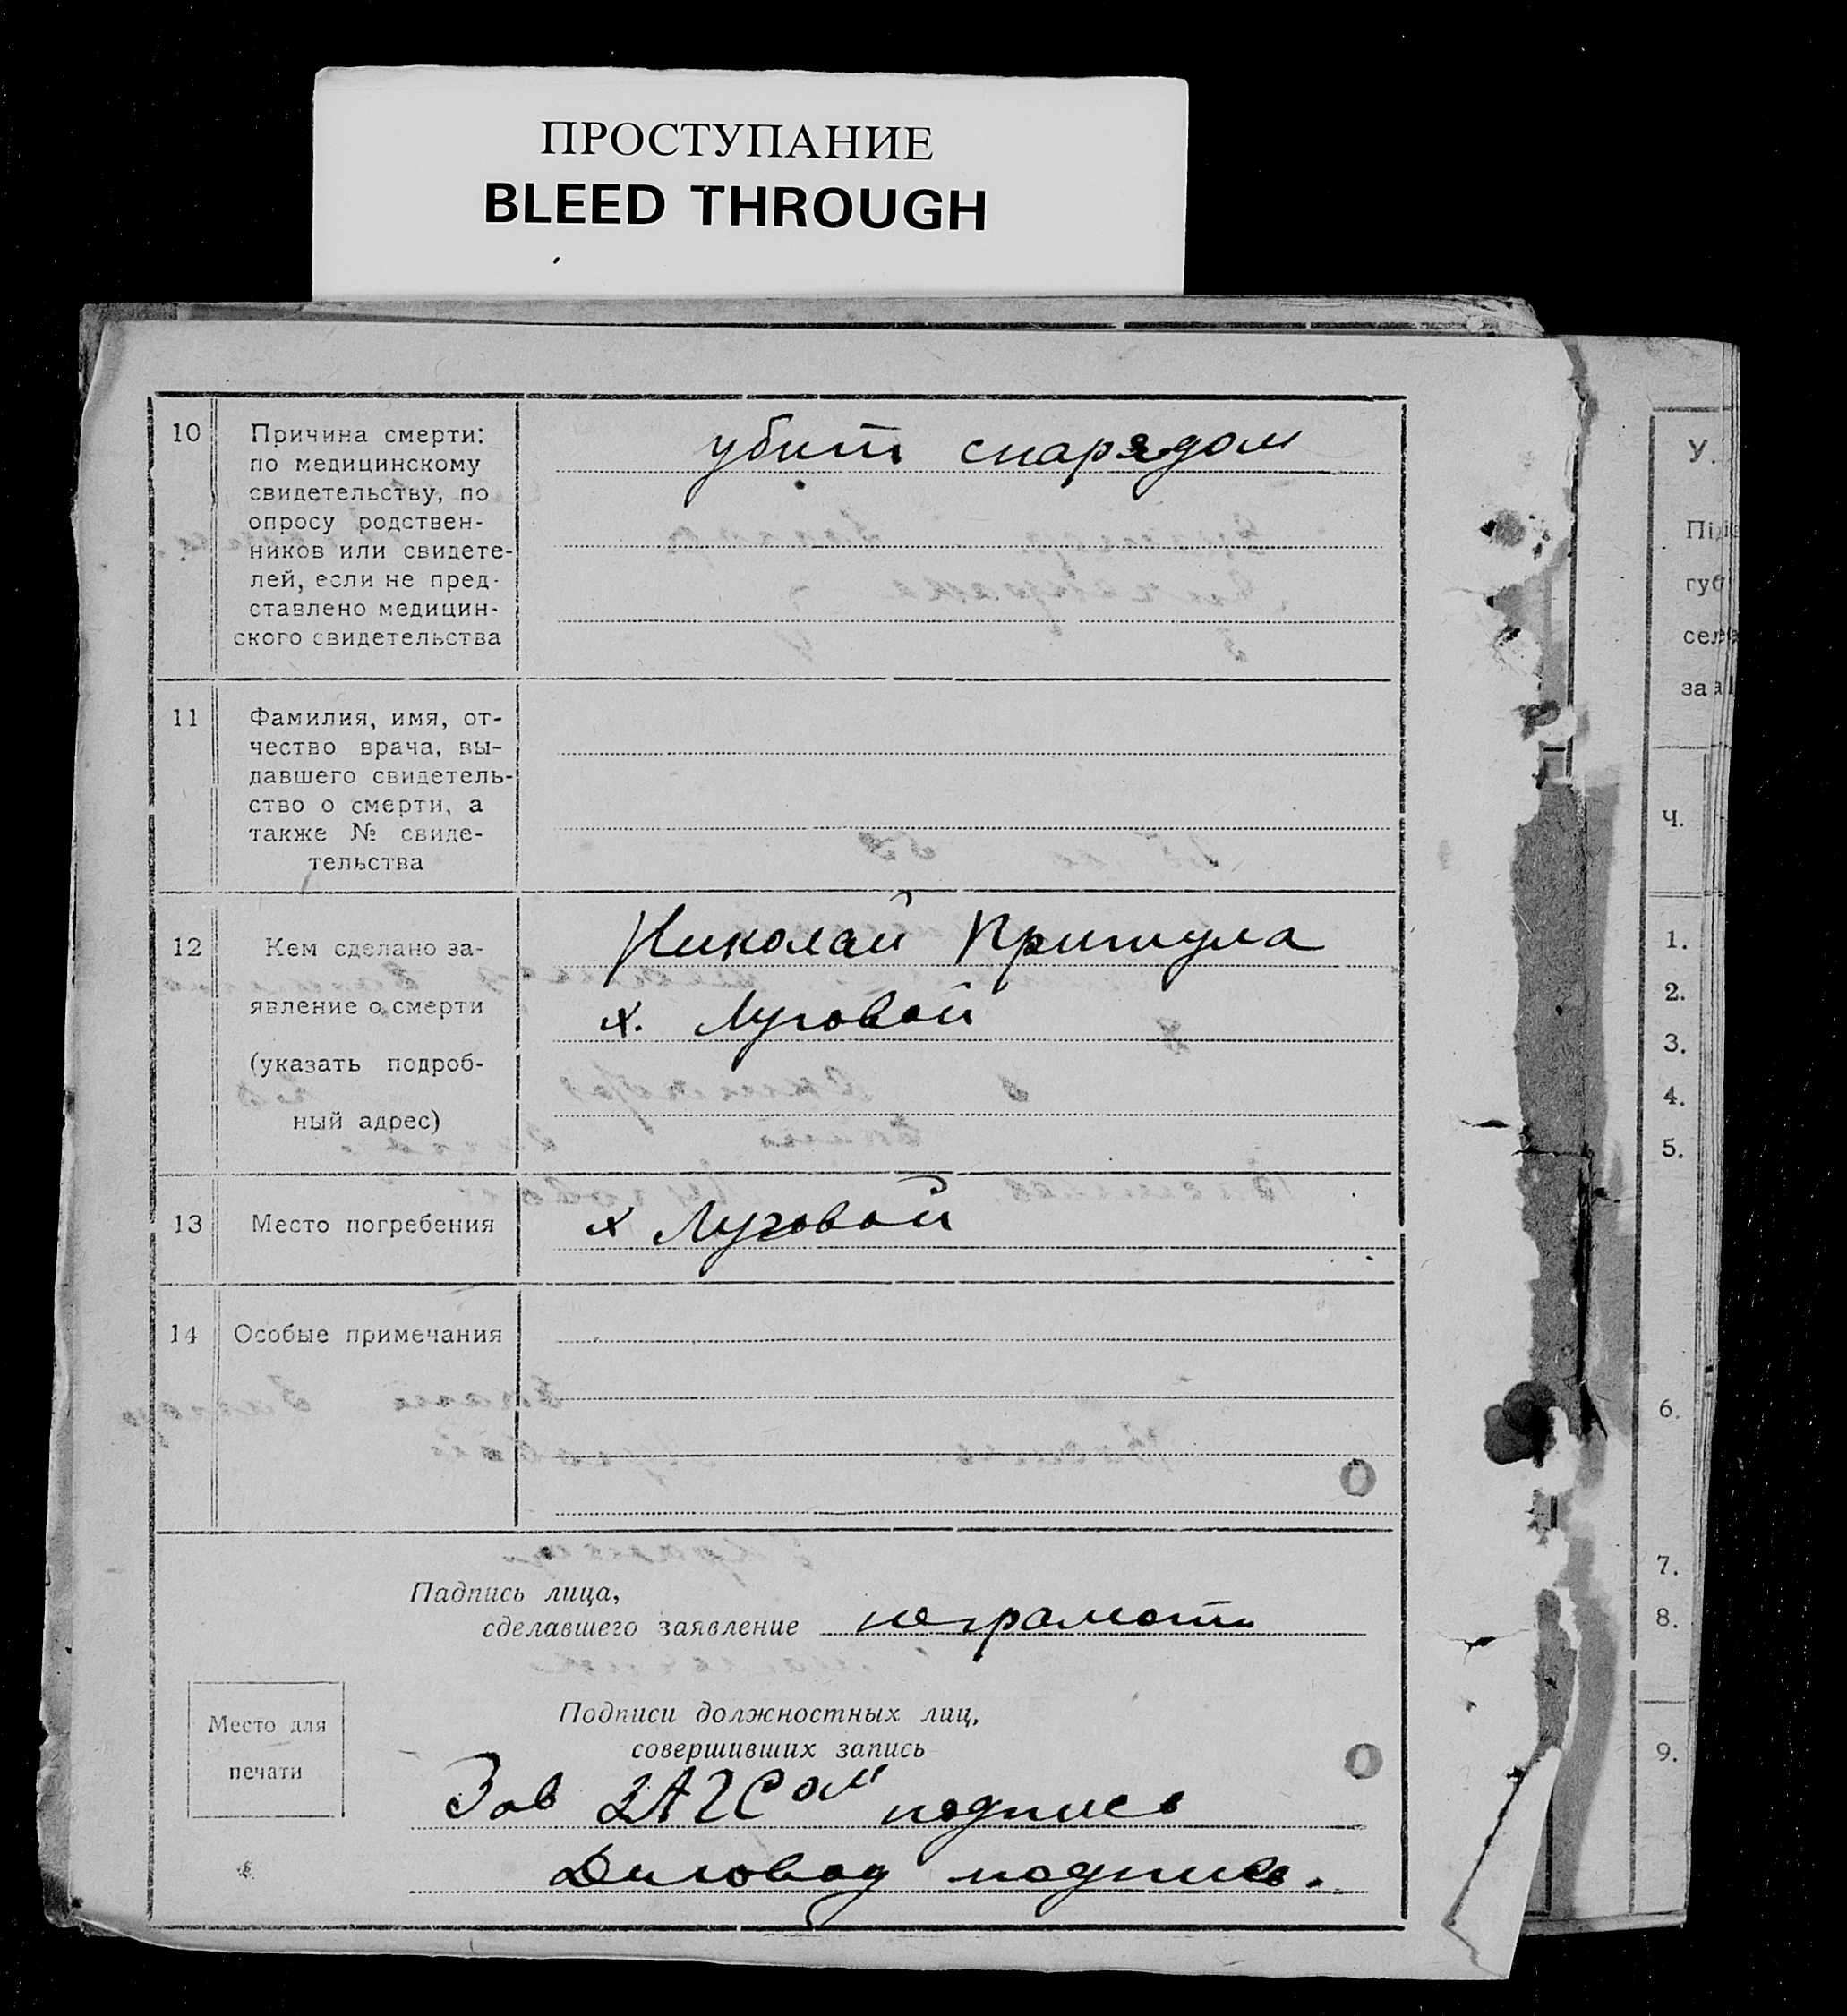 ПРОСТУПАНИЕ
BLEED THROUGH
10
Причина смерти:
по медицинскому
свидетельству, по
опросу родствен-
ников или свидете-
лей, если не пред-
ставлено медицин-
ского свидетельства
убит снарядом
11
Фамилия, имя, от-
чество врача, вы-
давшего свидетель-
ство о смерти, а
также № свиде-
тельства
12
Кем сделано за-
явление о смерти
(указать подроб-
ный адрес)
Николай Притула
х. Луговой
13
Место погребения
х Луговой
14
Особые примечания
Падпись лица,
сделавшего заявление неграмотн
Место для
печати
Подписи должностных лиц,
совершивших запись
Зав ЗАГСом подпись
Диловод подпись.
У.
Під
губ
сел
за
Ч.
1.
2.
3.
4.
5.
6.
7.
8.
9.